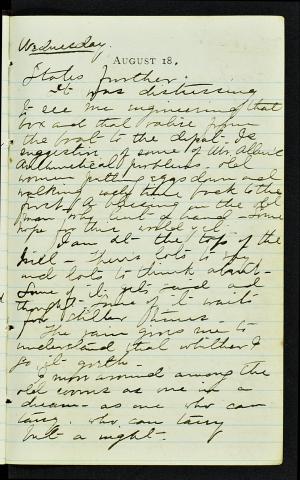 Wednesday.
August 18.
States further:
It was distressing
to see me engineering that
box and that valise from
the boat to the depot. Is
suggestion of some of Wm Allaire
Arithmetical problems. Old
woman putting eggs down and
walking back to the
first. A blessing on the old
man who lent a hand - some
hope for this world yet.
I am at the top of the
hill - There's lots to see
and lots to think about -
Some of it gets said and
thought - some of it waits
for stiller times -
The rain gives me to
understand that whither I
go, it goeth -
I move around among the
old rooms as one in a
dream - as one who can
tarry, who can tarry
but a night -